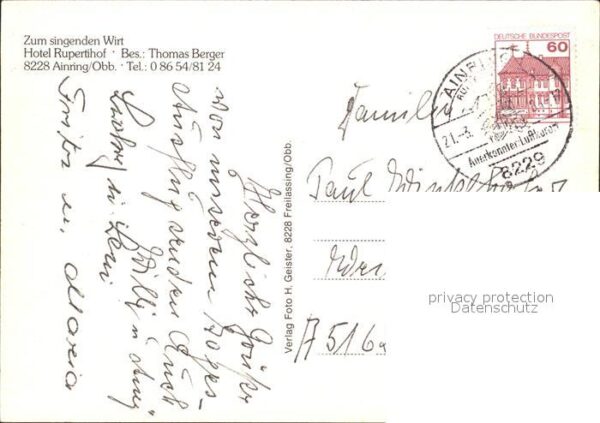 Zum singenden Wirt
Hotel Rupertihof · Bes.: Thomas Berger
8228 Ainring/Obb. · Tel.: 0 86 54/81 24
DEUTSCHE BUNDESPOST
60
AINRING
21.-8.
Anerkannter Luftkurort
8229
Familie
Paul
A 516
Verlag Foto H. Geister, 8228 Freilassing/Obb.
Herzliche Grüße
von unserem Tages-
Ausflug senden Euch
Willi u. Anny
Leni
u. Maria
privacy protection
Datenschutz